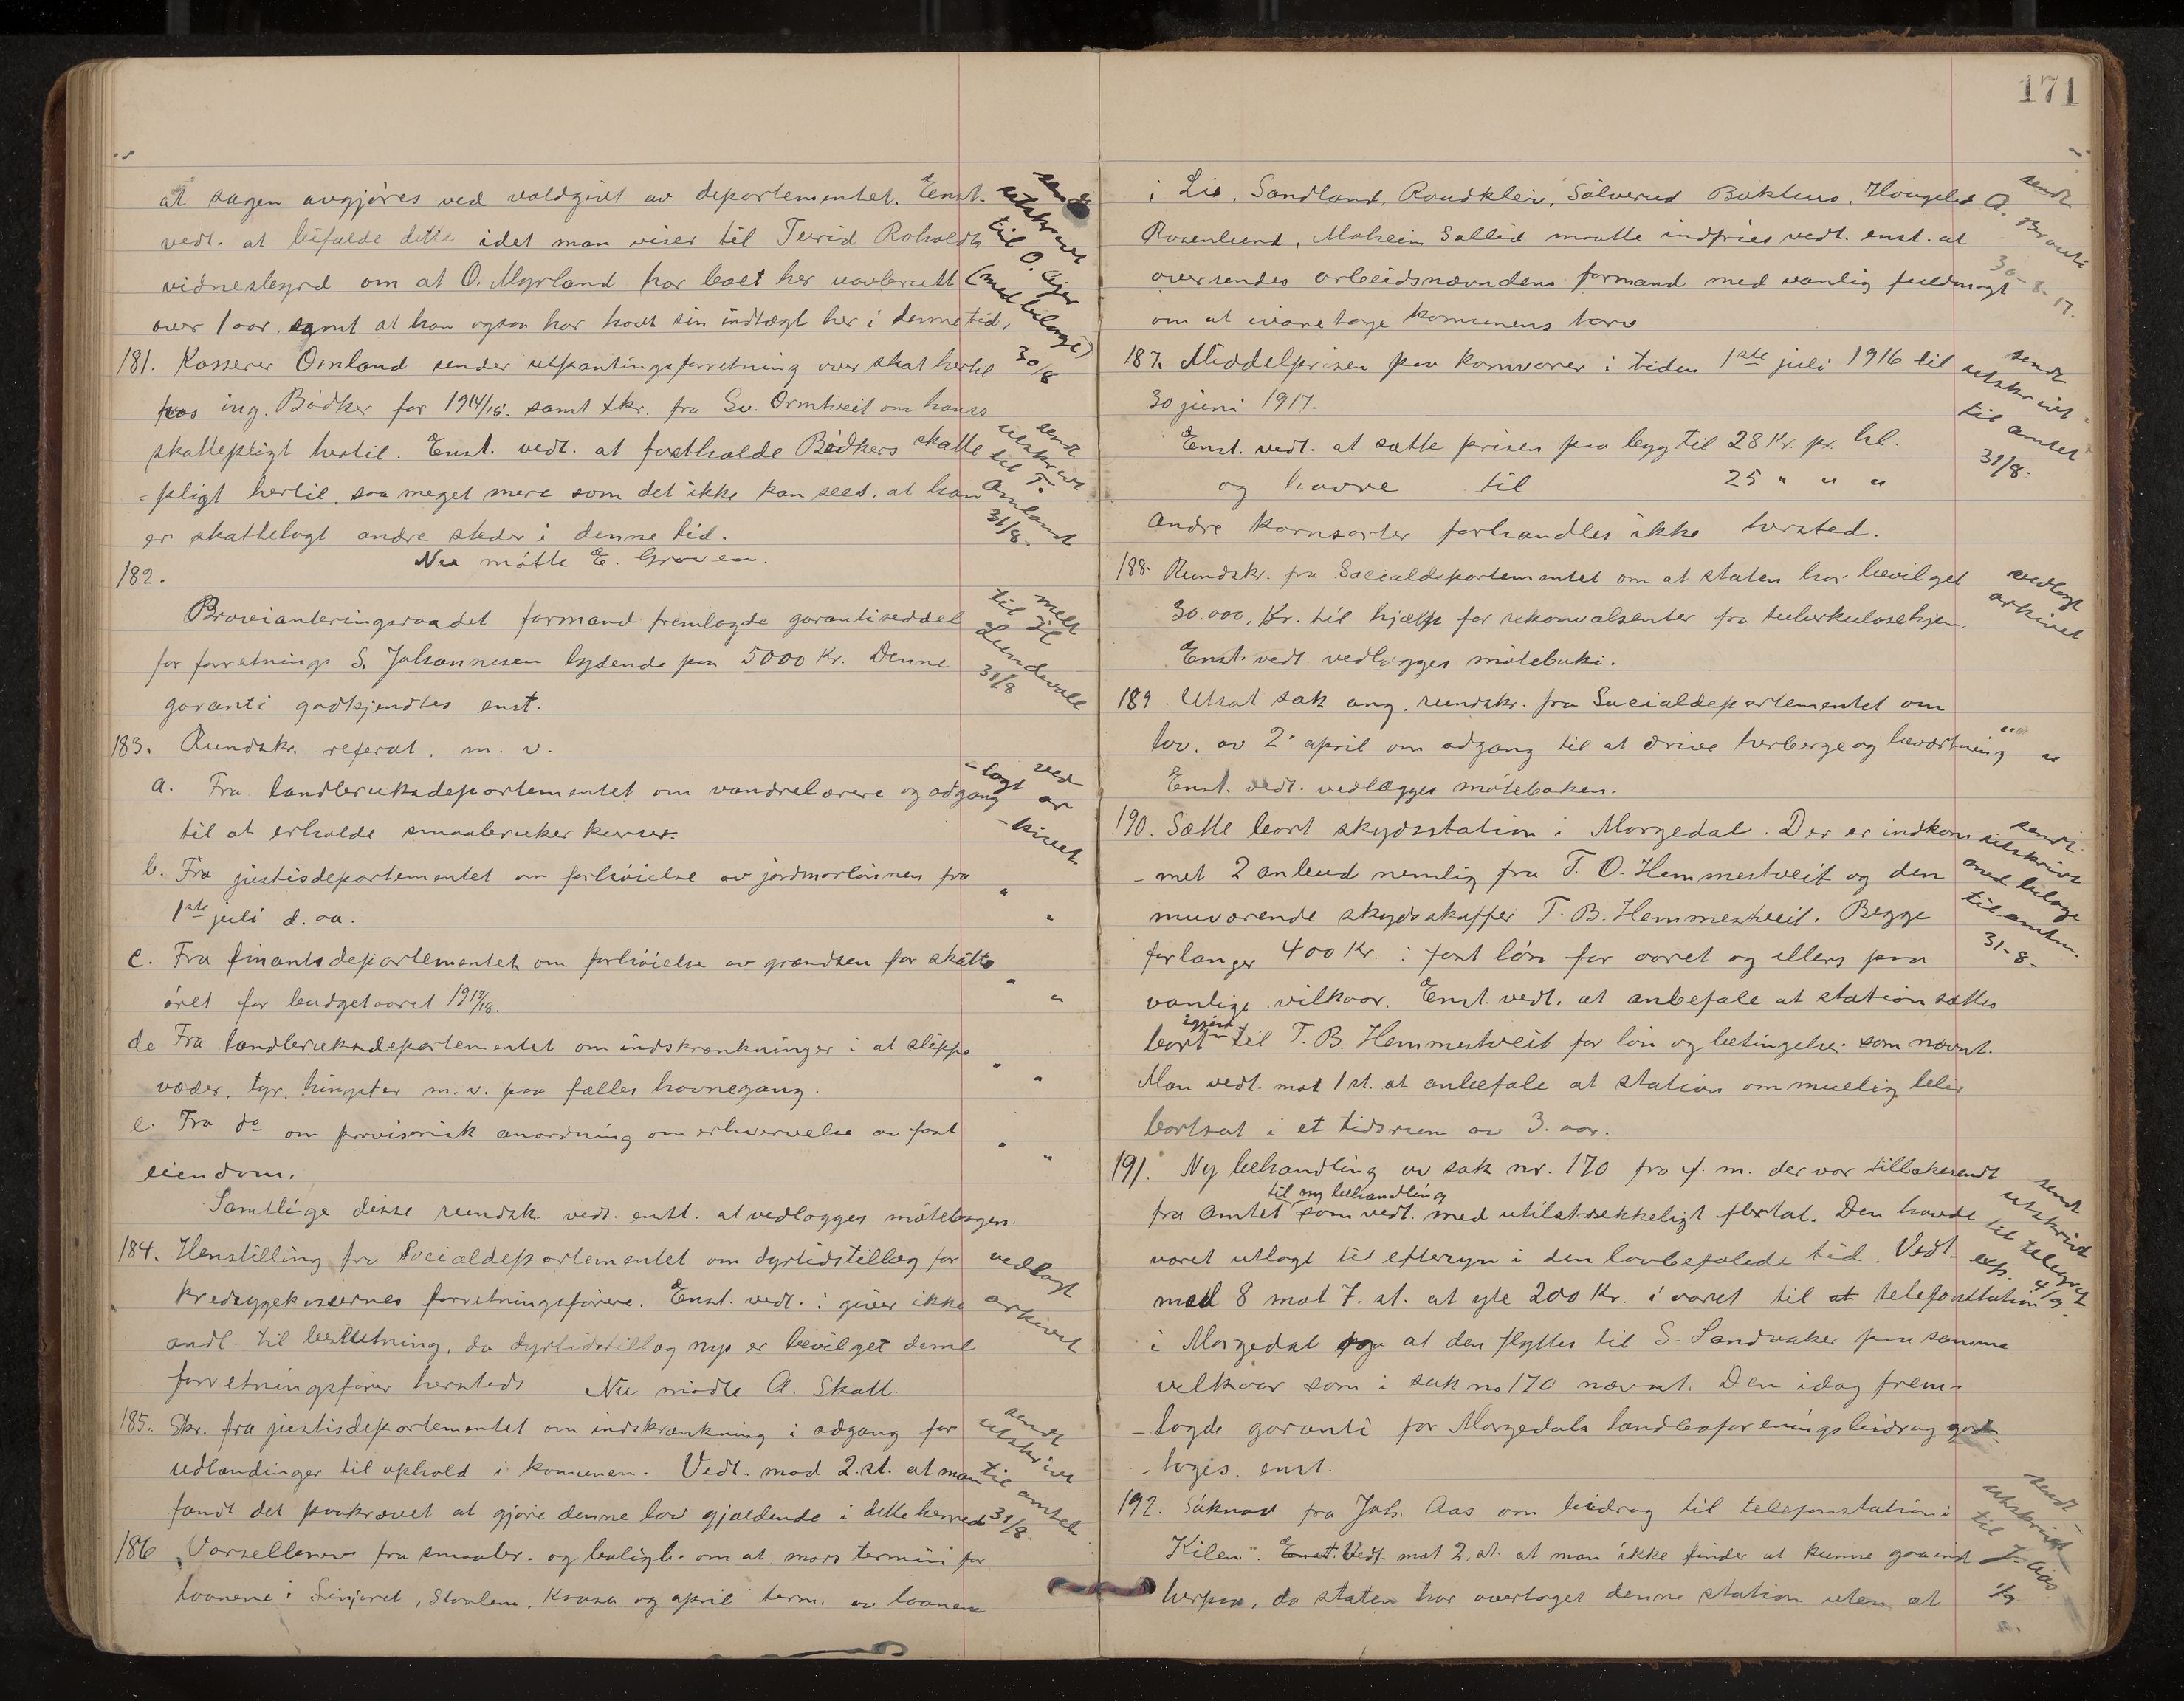 at sagen avgjöres ved voldgivt av departementet. Enst.
vedt. at bifalde dette idet man viser til Turid Roholdts
vidnesbyrd om at O. Myrland har boet her uavbrutt
over 1 aar, samt at han ogsaa har havt sin indtægt her i denne tid,
sendt utskrivt til O. (med bilage) 30/8
181. Kasserer Omland sender utpantingsforretning over skat hertil
hos ing. Bödker for 1914/15. samt skr. fra Sv. Ormtveit om hans
skattepligt hertil. Enst. vedt. at fastholde Bödkers skatte
-pligt hertil, saa meget mere som det ikke kan sees, at han
er skattelagt andre steder i denne tid.
sendt utskrivt til T. Omland 31/8.
Nu mötte E. Groven.
182.
Provianteringsraadet formand fremlagde garantiseddel
for forretnings S. Johannesen lydende paa 5000 Kr. Denne
garanti godkjendtes enst.
melt til 31/8
183. Rundskr. referat. m. v.
a. Fra landbruksdepartementet om vandrelærere og adgang
til at erholde smaabruker kurser.
ved -lagt ar -kivet
b. Fra justisdepartementet om forhöielse av jordmorlönnen fra
1ste juli d. aa.
" "
c. Fra finantsdepartementet om forhöielse av grændsen for skatte
öret for budgetaaret 1917/18.
" "
de Fra landbruksdepartementet om indskrænkninger i at slippe
væder, tyr, hingster m. v. paa fælles havnegang.
" "
e. Fra do om provisorisk anordning om erhvervelse av fast
eiendom.
" "
Samtlige disse rundsk. vedt. enst. at vedlægges mötebogen.
184. Henstilling fra Socialdepartementet om dyrtidstillæg for
kredsygekassernes forretningsförere. Enst. vedt.: giver ikke
andl. til beslutning, da dyrtidstillæg nys er bevilget deml
forretningsförer hersteds Nu mödte A. Skatt.
vedlagt arkivet
185. Skr. fra justisdepartementet om indskrænkning i adgang for
udlændinger til ophold i komunen. Vedt. mod 2. st. at man
fandt det paakrævet at gjöre denne lov gjældende i dette herred
sendt utskrivt til amtet 31/8.
186 Varselbrev fra smaabr. og boligb. om at mars termin for
laanene i Sinjoret, Stoolem, Kaasa og april term. av laanene
171
i Lie, Sandland, Raudklev, Sölverud Bakhus, Haugelid
Rosenlund, Moheim Sollid maatte indfries vedt. enst. at
oversendes arbeidsnævndens formand med vanlig fuldmagt
om at ivaretage komunens tarv
sendt A. 30-8-17.
187. Middelprisen paa kornvarer i tiden 1ste juli 1916 til
30 juni 1917.
Enst. vedt. at sætte prisen paa bygg til 28 Kr. pr. hl.
og havre til 25 " " "
Andre kornsorter forhandles ikke hersted.
sendt utskrivt til amtet 31/8.
188. Rundskr. fra Socialdepartementet om at staten har bevilget
30.000, Kr. til hjælp for rekonvalsenter fra tuberkulosehjem.
Enst. vedt. vedlægges mötebuki.
vedlagt arkivet
189. Utsat sak ang. rundskr. fra Socialdepartementet om
lov. av 2. april om adgang til at drive herberge og bevertning
Enst. vedt. vedlægges mötebaken.
" "
190. Sætte bort skydsstation i Morgedal. Der er indkom
-met 2 anbud nemlig fra T. O. Hemmestveit og den
nuværende skydsskaffer T. B. Hemmestveit. Begge
forlanger 400 Kr. i fast lön for aaret og ellers paa
vanlige vilkaar. Enst. vedt. at anbefale at station sættes
bort igjen til T. B. Hemmestveit for lön og betingelse som nævnt.
Man vedt. mot 1 st. at anbefale at station om muelig blir
bortsat i et tidsrum av 3. aar.
sendt utskrivt med bilage til amtm. 31-8-
191. Ny behandling av sak nr. 170 fra f. m. der var tillakesendt
fra Amtet til ny behandling som vedt. med utilstrækkeligt flertal. Den havde
været utlagt til eftersyn i den lovbefalede tid. Vedt.
med 8 mot 7. st. at yte 200 Kr. i aaret til at telefonstation
i Morgedal og at den flyttes til S. Sandvaker paa samme
vilkaar som i sak no 170 nævnt. Den idag frem-
-lagde garanti for Morgedals landhandelforeningsbidrag god-
-toges. enst.
sendt utskrivt til telegraf 4/9.
192. Söknad fra Joh. Aas om bidrag til telefonstation i
Kilen. Enst. Vedt. mot 2. st. at man ikke finder at kunne gaa ind
herpaa, da staten har overtaget denne station uten at
sendt utskrivt til J. Aas 1/9